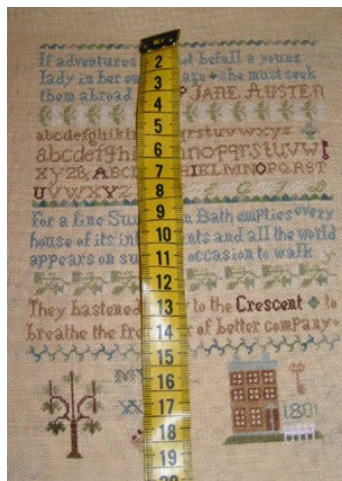 If adventures not befall a young
lady in her own she must seek
them abroad JANE AUSTEN
abcdefghikl rstuvwxyz
abcdefgh nopqrstuvw
xyz& ABC HIKLMNOPQRST
UVWXYZ
For a fine Sun in Bath empties every
house of its ents and all the world
appears on su occasion to walk
They hastened to the Crescent to
breathe the fre of better company
MY
1801
2
3
4
5
6
7
8
9
10
11
12
13
14
15
16
17
18
19